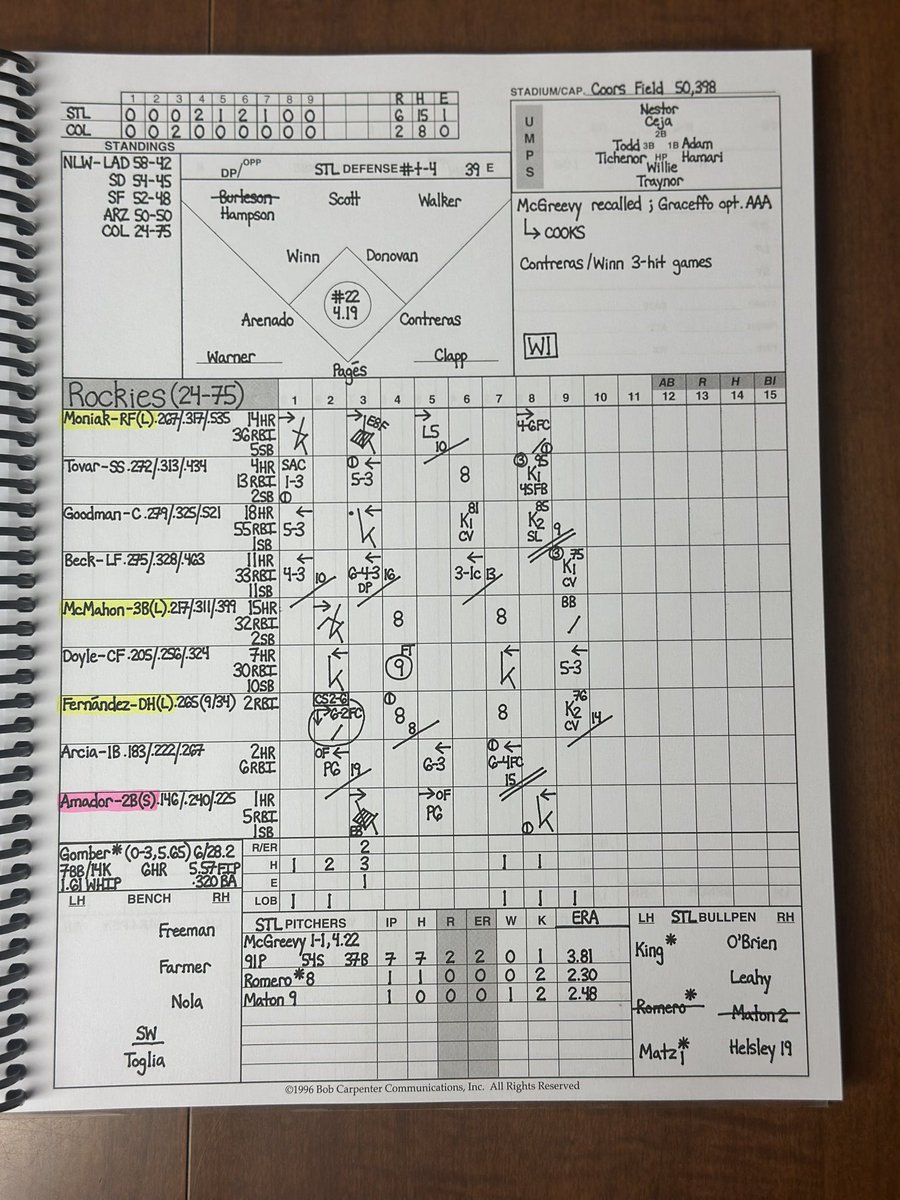 STADIUM/CAP. Coors Field 50,398
1 2 3 4 5 6 7 8 9 R H E
STL 0 0 0 2 1 2 1 0 0 6 15 1
COL 0 0 2 0 0 0 0 0 0 2 8 0
UMPS
Nestor
Ceja
2B
Todd 3B 1B Adam
Tichenor HP Hamari
Willie
Traynor
STANDINGS
NLW-LAD 58-42
SD 54-45
SF 52-48
ARZ 50-50
COL 24-75
DP/OPP STL DEFENSE #1-4 39 E
Burleson Scott Walker
Hampson
Winn Donovan
#22
4.19
Arenado Contreras
Warner Clapp
Pagés
McGreevy recalled; Graceffo opt. AAA
↳ COOKS
Contreras/Winn 3-hit games
WI
Rockies (24-75) 1 2 3 4 5 6 7 8 9 10 11 12 13 14 15
AB R H BI
Moniak-RF(L) .267/.317/.535 14HR
36RBI
5SB
EBF
L5
10
4-6FC
Tovar-SS .272/.313/.434 4HR
13RBI
2SB
SAC
1-3
5-3
8
95
K1
4SFB
Goodman-C .279/.325/.521 18HR
55RBI
1SB
5-3
K
81
K1
CV
85
K2
SL
9
Beck-LF .275/.328/.463 11HR
33RBI
11SB
4-3 10
6-4-3 16
DP
3-1c 13
75
K1
CV
McMahon-3B(L) .217/.311/.399 15HR
32RBI
2SB
8
7
8
BB
Doyle-CF .205/.256/.324 7HR
30RBI
10SB
FT
9
5-3
Fernández-DH(L) .265(9/34) 2RBI
CS2-6
6-2FC
8
8
8
76
K2
CV
14
Arcia-1B .183/.222/.267 2HR
6RBI
OF
P6 19
6-3
6-4FC
15
Amador-2B(S) .146/.240/.225 1HR
5RBI
1SB
EB
OF
P6
K
R/ER 2
H 1 2 3 1 1
E 1
LOB 1 1 1 1 1
Gomber* (0-3, 5.65) 6/28.2
7BB/14K 6HR 5.57FIP
1.61 WHIP .320 BA
LH BENCH RH
Freeman
Farmer
Nola
SW
Toglia
STL PITCHERS IP H R ER W K ERA
McGreevy 1-1, 4.22
91P 54S 37B 7 7 2 2 0 1 3.81
Romero*8 1 1 0 0 0 2 2.30
Maton 9 1 0 0 0 1 2 2.48
LH STL BULLPEN RH
King* O'Brien
Leahy
Romero* Maton 2
Matz* Helsley 19
©1996 Bob Carpenter Communications, Inc. All Rights Reserved